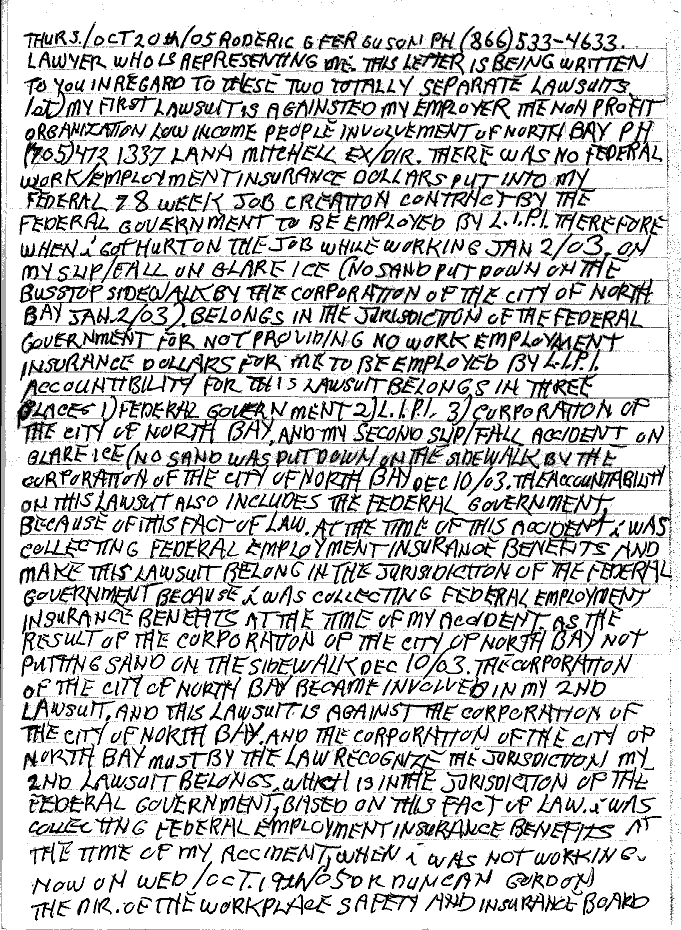 THURS./OCT 20th/05 RODERIC G FERGUSON PH (866)533-4633.
LAWYER WHO IS REPRESENTING ME. THIS LETTER IS BEING WRITTEN
TO YOU IN REGARD TO THESE TWO TOTALLY SEPARATE LAWSUITS
1st) MY FIRST LAWSUIT IS AGAINSTED MY EMPLOYER THE NON PROFIT
ORGANIZATION LOW INCOME PEOPLE INVOLVEMENT OF NORTH BAY PH
(705)472 1337 LANA MITCHELL EX/DIR. THERE WAS NO FEDERAL
WORK/EMPLOYMENT INSURANCE DOLLARS PUT INTO MY
FEDERAL 78 WEEK JOB CREATION CONTRACT BY THE
FEDERAL GOVERNMENT TO BE EMPLOYED BY L.I.P.I. THEREFORE
WHEN i GOT HURT ON THE JOB WHILE WORKING JAN 2/03, ON
MY SLIP/FALL ON GLARE ICE (NO SAND PUT DOWN ON THE
BUSSTOP SIDEWALK BY THE CORPORATION OF THE CITY OF NORTH
BAY JAN.2/03). BELONGS IN THE JURISDICTION OF THE FEDERAL
GOVERNMENT FOR NOT PROVIDING NO WORK EMPLOYMENT
INSURANCE DOLLARS FOR ME TO BE EMPLOYED BY L.I.P.I.
ACCOUNTIBILITY FOR THIS LAWSUIT BELONGS IN THREE
PLACES 1) FEDERAL GOVERNMENT 2) L.I.P.I. 3) CORPORATION OF
THE CITY OF NORTH BAY, AND MY SECOND SLIP/FALL ACCIDENT ON
GLARE ICE (NO SAND WAS PUT DOWN ON THE SIDEWALK BY THE
CORPORATION OF THE CITY OF NORTH BAY DEC 10/03. THE ACCOUNTABILITY
ON THIS LAWSUIT ALSO INCLUDES THE FEDERAL GOVERNMENT,
BECAUSE OF THIS FACT OF LAW. AT THE TIME OF THIS ACCIDENT i WAS
COLLECTING FEDERAL EMPLOYMENT INSURANCE BENEFITS AND
MAKE THIS LAWSUIT BELONG IN THE JURISIDICTION OF THE FEDERAL
GOVERNMENT BECAUSE i WAS COLLECTING FEDERAL EMPLOYMENT
INSURANCE BENEFITS AT THE TIME OF MY ACCIDENT, AS THE
RESULT OF THE CORPORATION OF THE CITY OF NORTH BAY NOT
PUTTING SAND ON THE SIDEWALK DEC 10/03. THE CORPORATION
OF THE CITY OF NORTH BAY BECAME INVOLVED IN MY 2ND
LAWSUIT, AND THIS LAWSUIT IS AGAINST THE CORPORATION OF
THE CITY OF NORTH BAY. AND THE CORPORATION OF THE CITY OF
NORTH BAY MUST BY THE LAW RECOGNIZE THE JURISDICTION MY
2ND LAWSUIT BELONGS, WHICH IS IN THE JURSDICTION OF THE
FEDERAL GOVERNMENT, BASED ON THIS FACT OF LAW. i WAS
COLLECTING FEDERAL EMPLOYMENT INSURANCE BENEFITS AT
THE TIME OF MY ACCIDENT, WHEN i WAS NOT WORKING.
NOW ON WED/OCT.19th/05 DR DUNCAN GORDON
THE DIR. OF THE WORKPLACE SAFETY AND INSURANCE BOARD